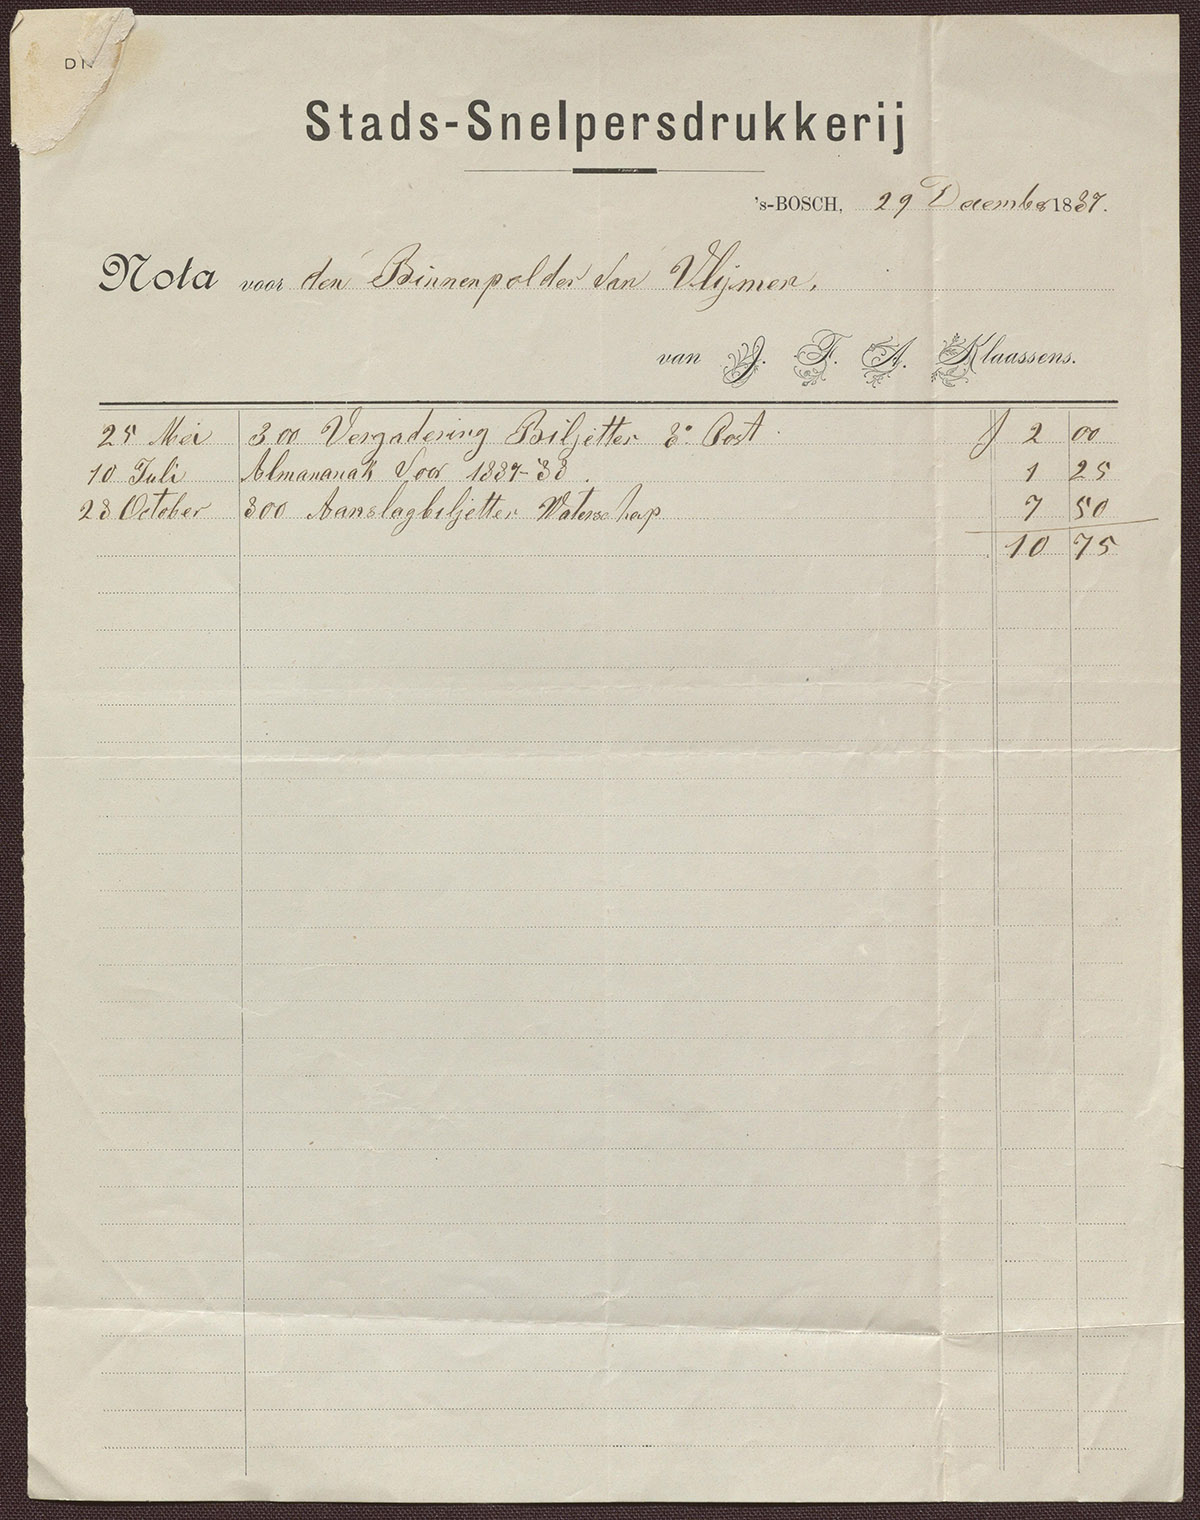 Stads-Snelpersdrukkerij
's-BOSCH, 29 December 1887.
Nota voor den Binnenpolder van Vlijmen.
van J. F. A. Klaassens.
25 Mei 300 Vergadering Biljetten Post f 2 00
10 Juli Almananak voor 1887-88. 1 25
28 October 300 Aanslagbiljetten Waterschap 7 50
10 75